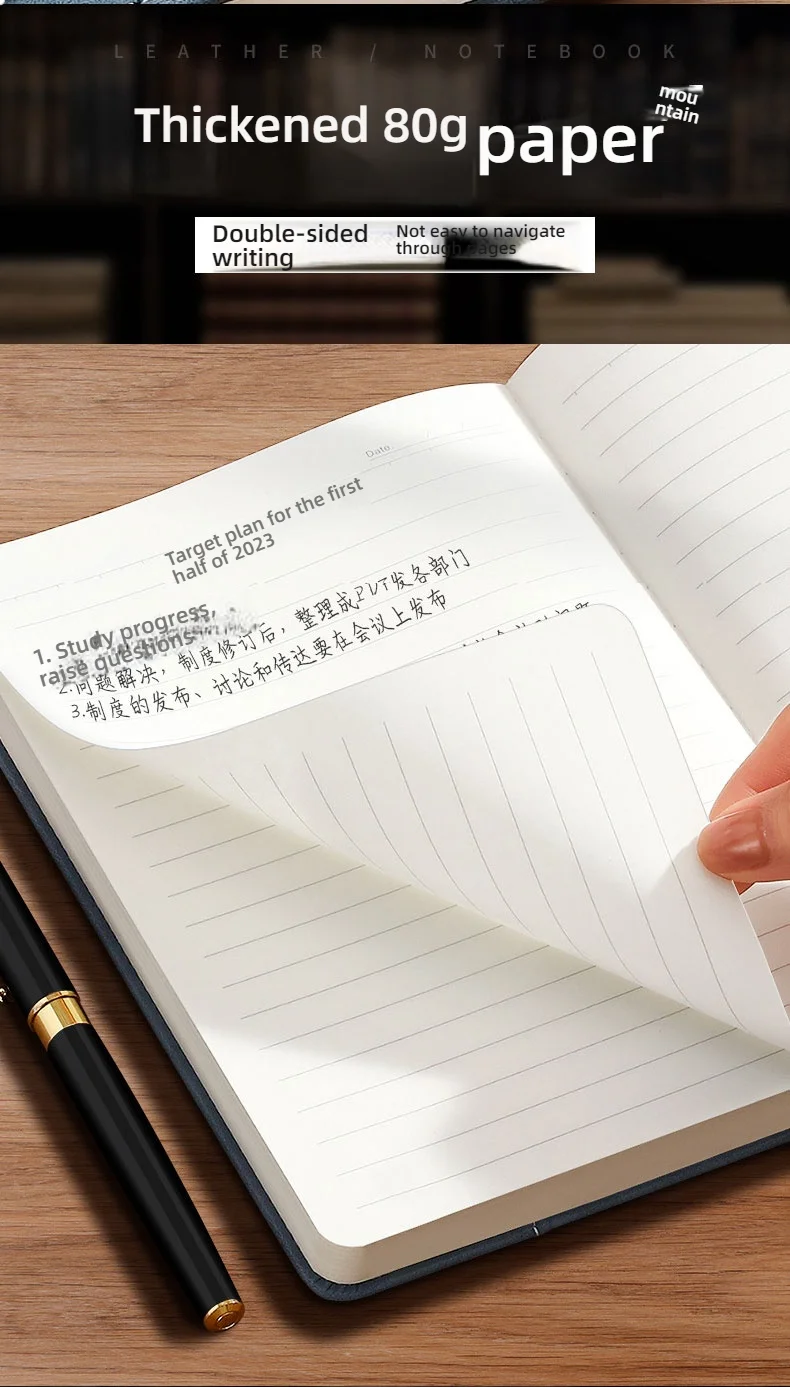 LEATHER / NOTEBOOK
mou
ntain
Thickened 80g paper
Double-sided
writing
Not easy to navigate
through pages
Date.
Target plan for the first
half of 2023
1. Study progress,
raise questions
整理成PVT发各部门
2.问题解决，制度修订后，
3.制度的发布、讨论和传达要在会议上发布